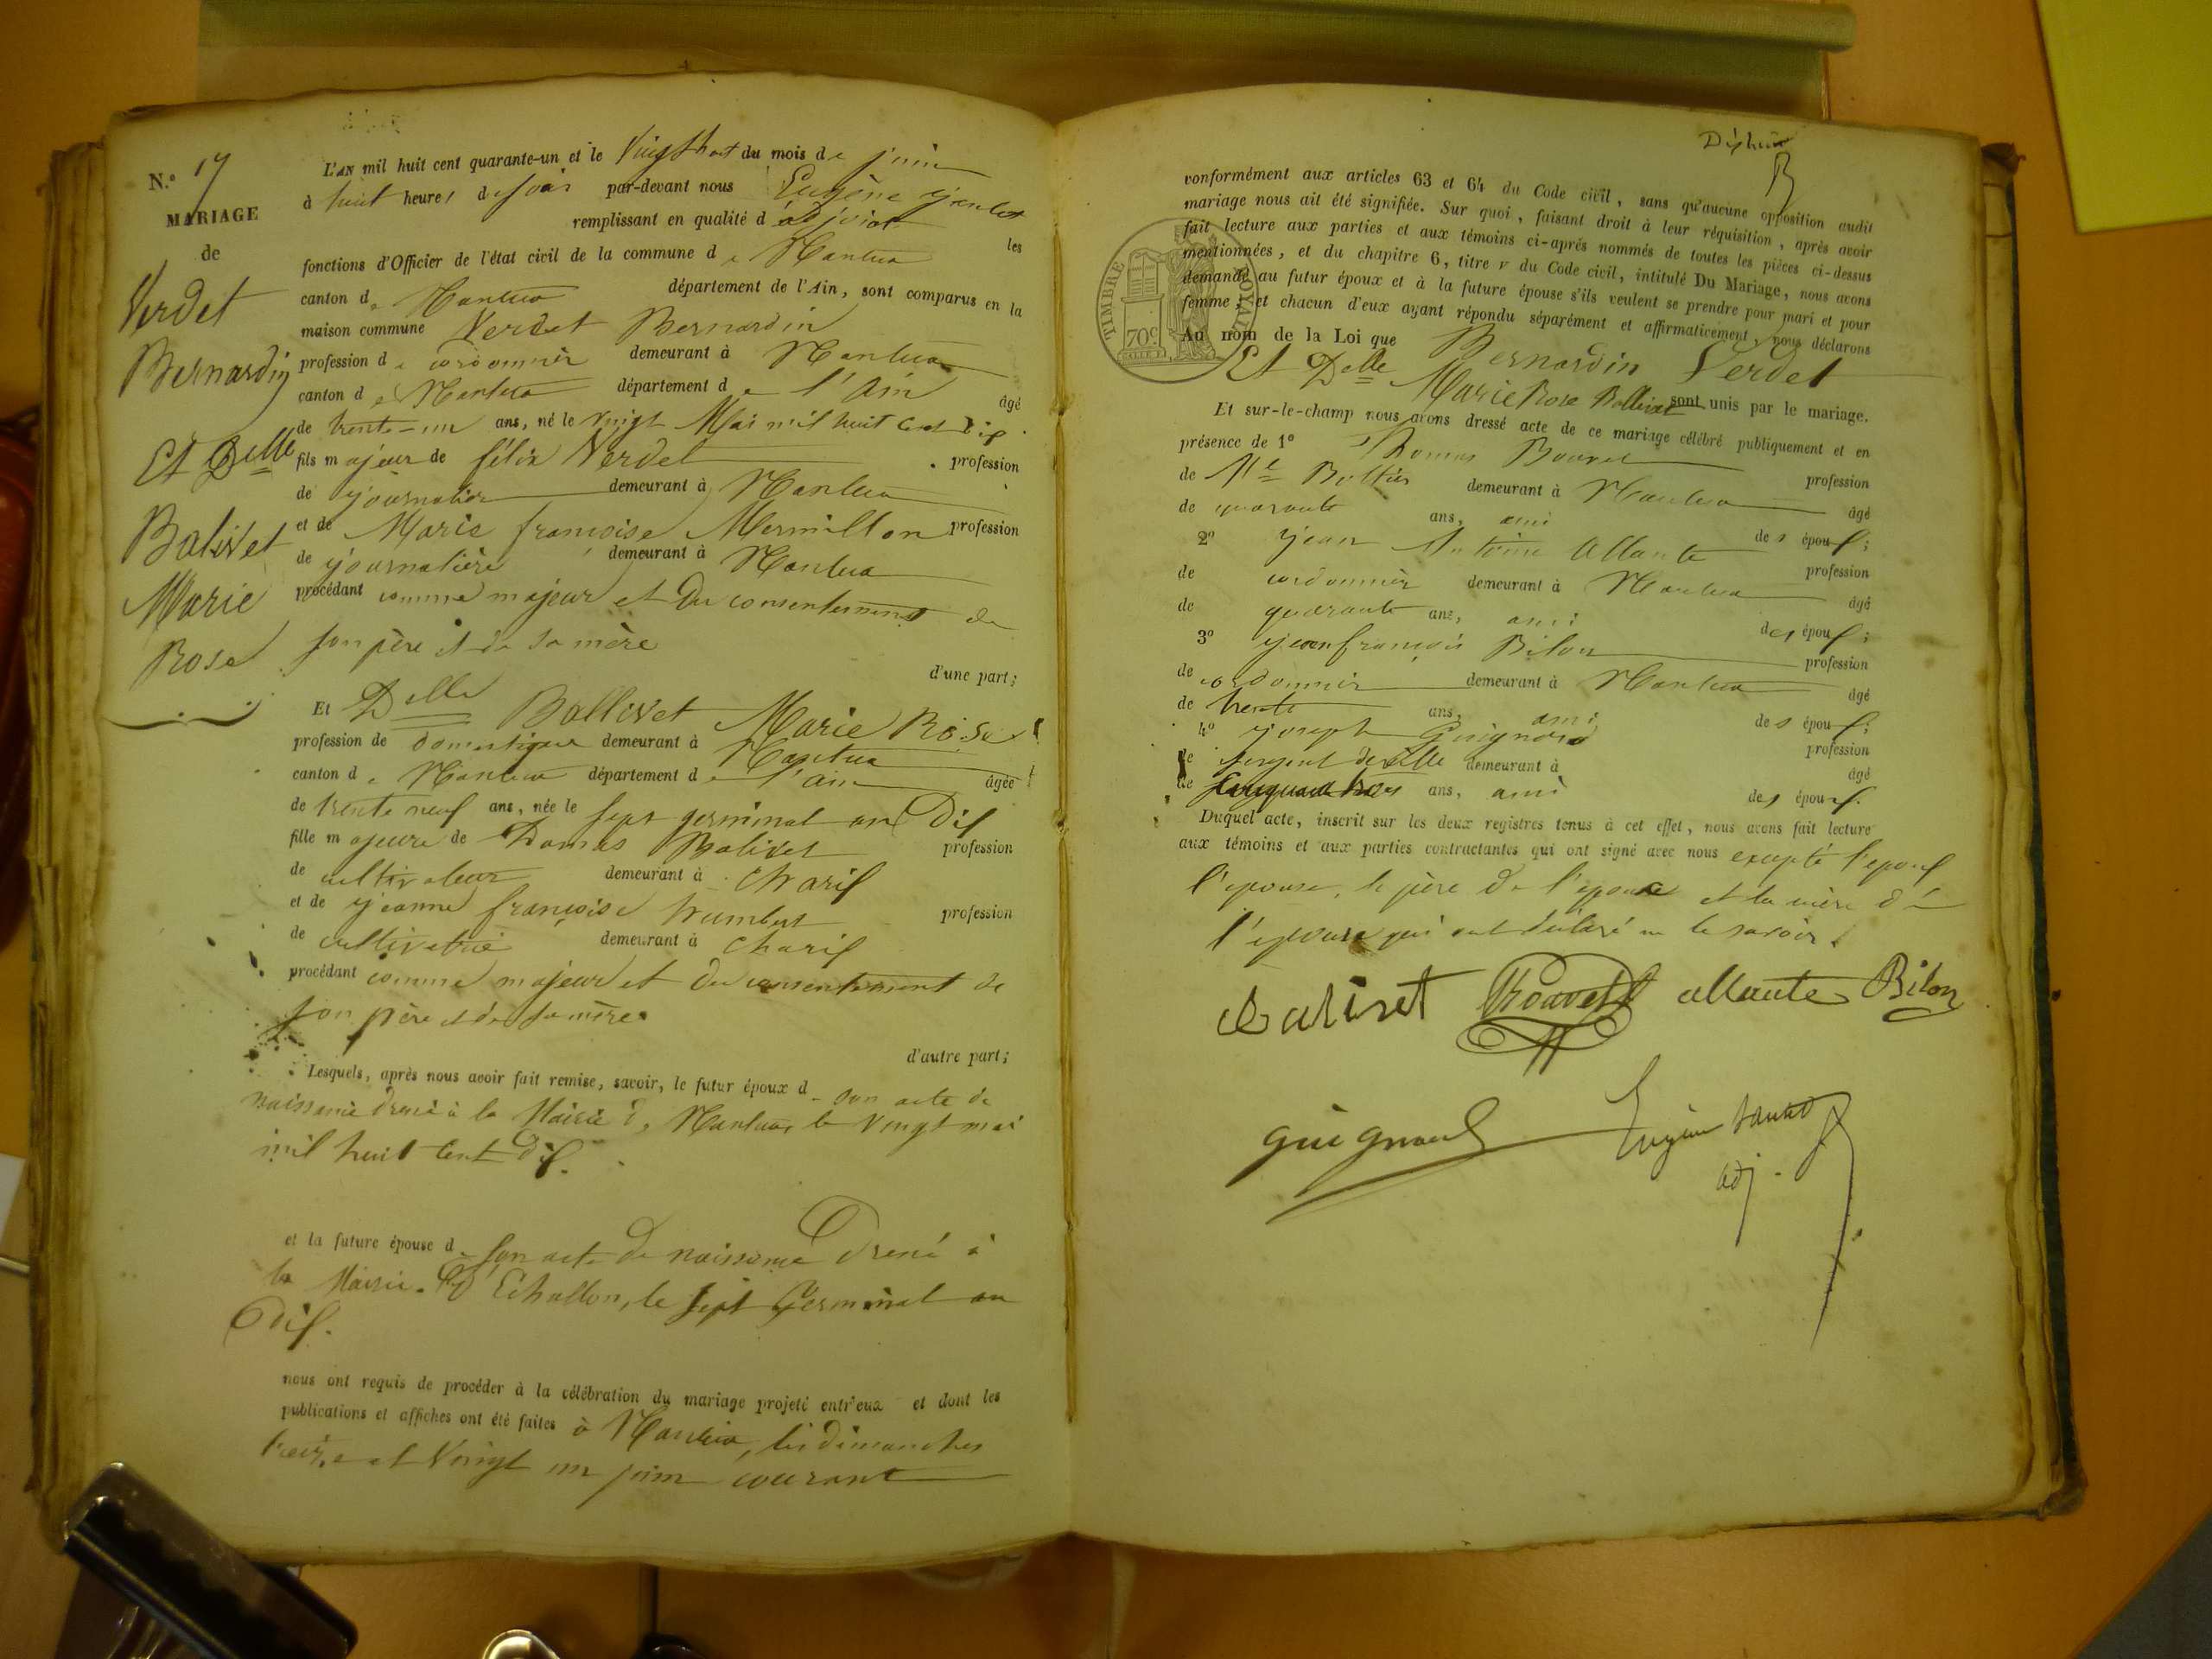 N.º 17
MARIAGE
de
Verdet
Bernardin
Et Delle
Balivet
Marie
Rose
L'AN mil huit cent quarante-un et le Vingt huit du mois de juin
à huit heures du soir par-devant nous Eugène
remplissant en qualité d'adjoint les
fonctions d'Officier de l'état civil de la commune de Nantua
canton de Nantua département de l'Ain, sont comparus en la
maison commune Verdet Bernardin
profession de cordonnier demeurant à Nantua
canton de Nantua département de l'Ain âgé
de trente-un ans, né le vingt Mai mil huit Cent dix
fils majeur de félix Verdet profession
de journalier demeurant à Nantua
et de Marie françoise Mermillon profession
de journalière demeurant à Nantua
procédant comme majeur et du consentement de
son père et de sa mère
d'une part;
Et Delle Ballivet Marie Rose
profession de domestique demeurant à Nantua
canton de Nantua département de l'ain âgée
de trente neuf ans, née le sept germinal an Dix
fille majeure de Thomas Balivet profession
de cultivateur demeurant à Charix
et de jeanne françoise humbert profession
de cultivatrice demeurant à Charix
procédant comme majeur et du consentement de
son père et de sa mère.
d'autre part;
Lesquels, après nous avoir fait remise, savoir, le futur époux d son acte de
naissance à la Mairie de Nantua, le Vingt mai
mil huit Cent Dix.
et la future épouse de son acte de naissance à
la Mairie D'Echallon, le sept Germinal an
Dix.
nous ont requis de procéder à la célébration du mariage projeté entr'eux et dont les
publications et affiches ont été faites à Nantua, les dimanches
treize et Vingt un juin courant
conformément aux articles 63 et 64 du Code civil, sans qu'aucune opposition audit
mariage nous ait été signifiée. Sur quoi, faisant droit à leur réquisition, après avoir
fait lecture aux parties et aux témoins ci-après nommés de toutes les pièces ci-dessus
mentionnées, et du chapitre 6, titre v du Code civil, intitulé Du Mariage, nous avons
demandé au futur époux et à la future épouse s'ils veulent se prendre pour mari et pour
femme; et chacun d'eux ayant répondu séparément et affirmativement, nous déclarons
TIMBRE ROYAL
70 c
Au nom de la Loi que Bernardin Verdet
Et Delle Marie Rose Ballivet sont unis par le mariage.
Et sur-le-champ nous avons dressé acte de ce mariage célébré publiquement et en
présence de 1º Thomas Bouvet profession
de Md Bottier demeurant à Nantua âgé
de quarante ans, ami des époux;
2º jean Antoine Allante profession
de cordonnier demeurant à Nantua âgé
de quarante ans, ami des époux;
3º jean françois Bilon profession
de cordonnier demeurant à Nantua âgé
de trente ans, ami des époux;
4º joseph Guignard profession
de sergent de ville demeurant à âgé
de ans, ami des époux.
Duquel acte, inscrit sur les deux registres tenus à cet effet, nous avons fait lecture
aux témoins et aux parties contractantes qui ont signé avec nous excepté l'epoux
l'epouse, le père de l'epoux et la mère de
l'epouse qui ont déclaré ne le savoir.
Balivet Bouvet allante Bilon
guignard Eugène
adj.